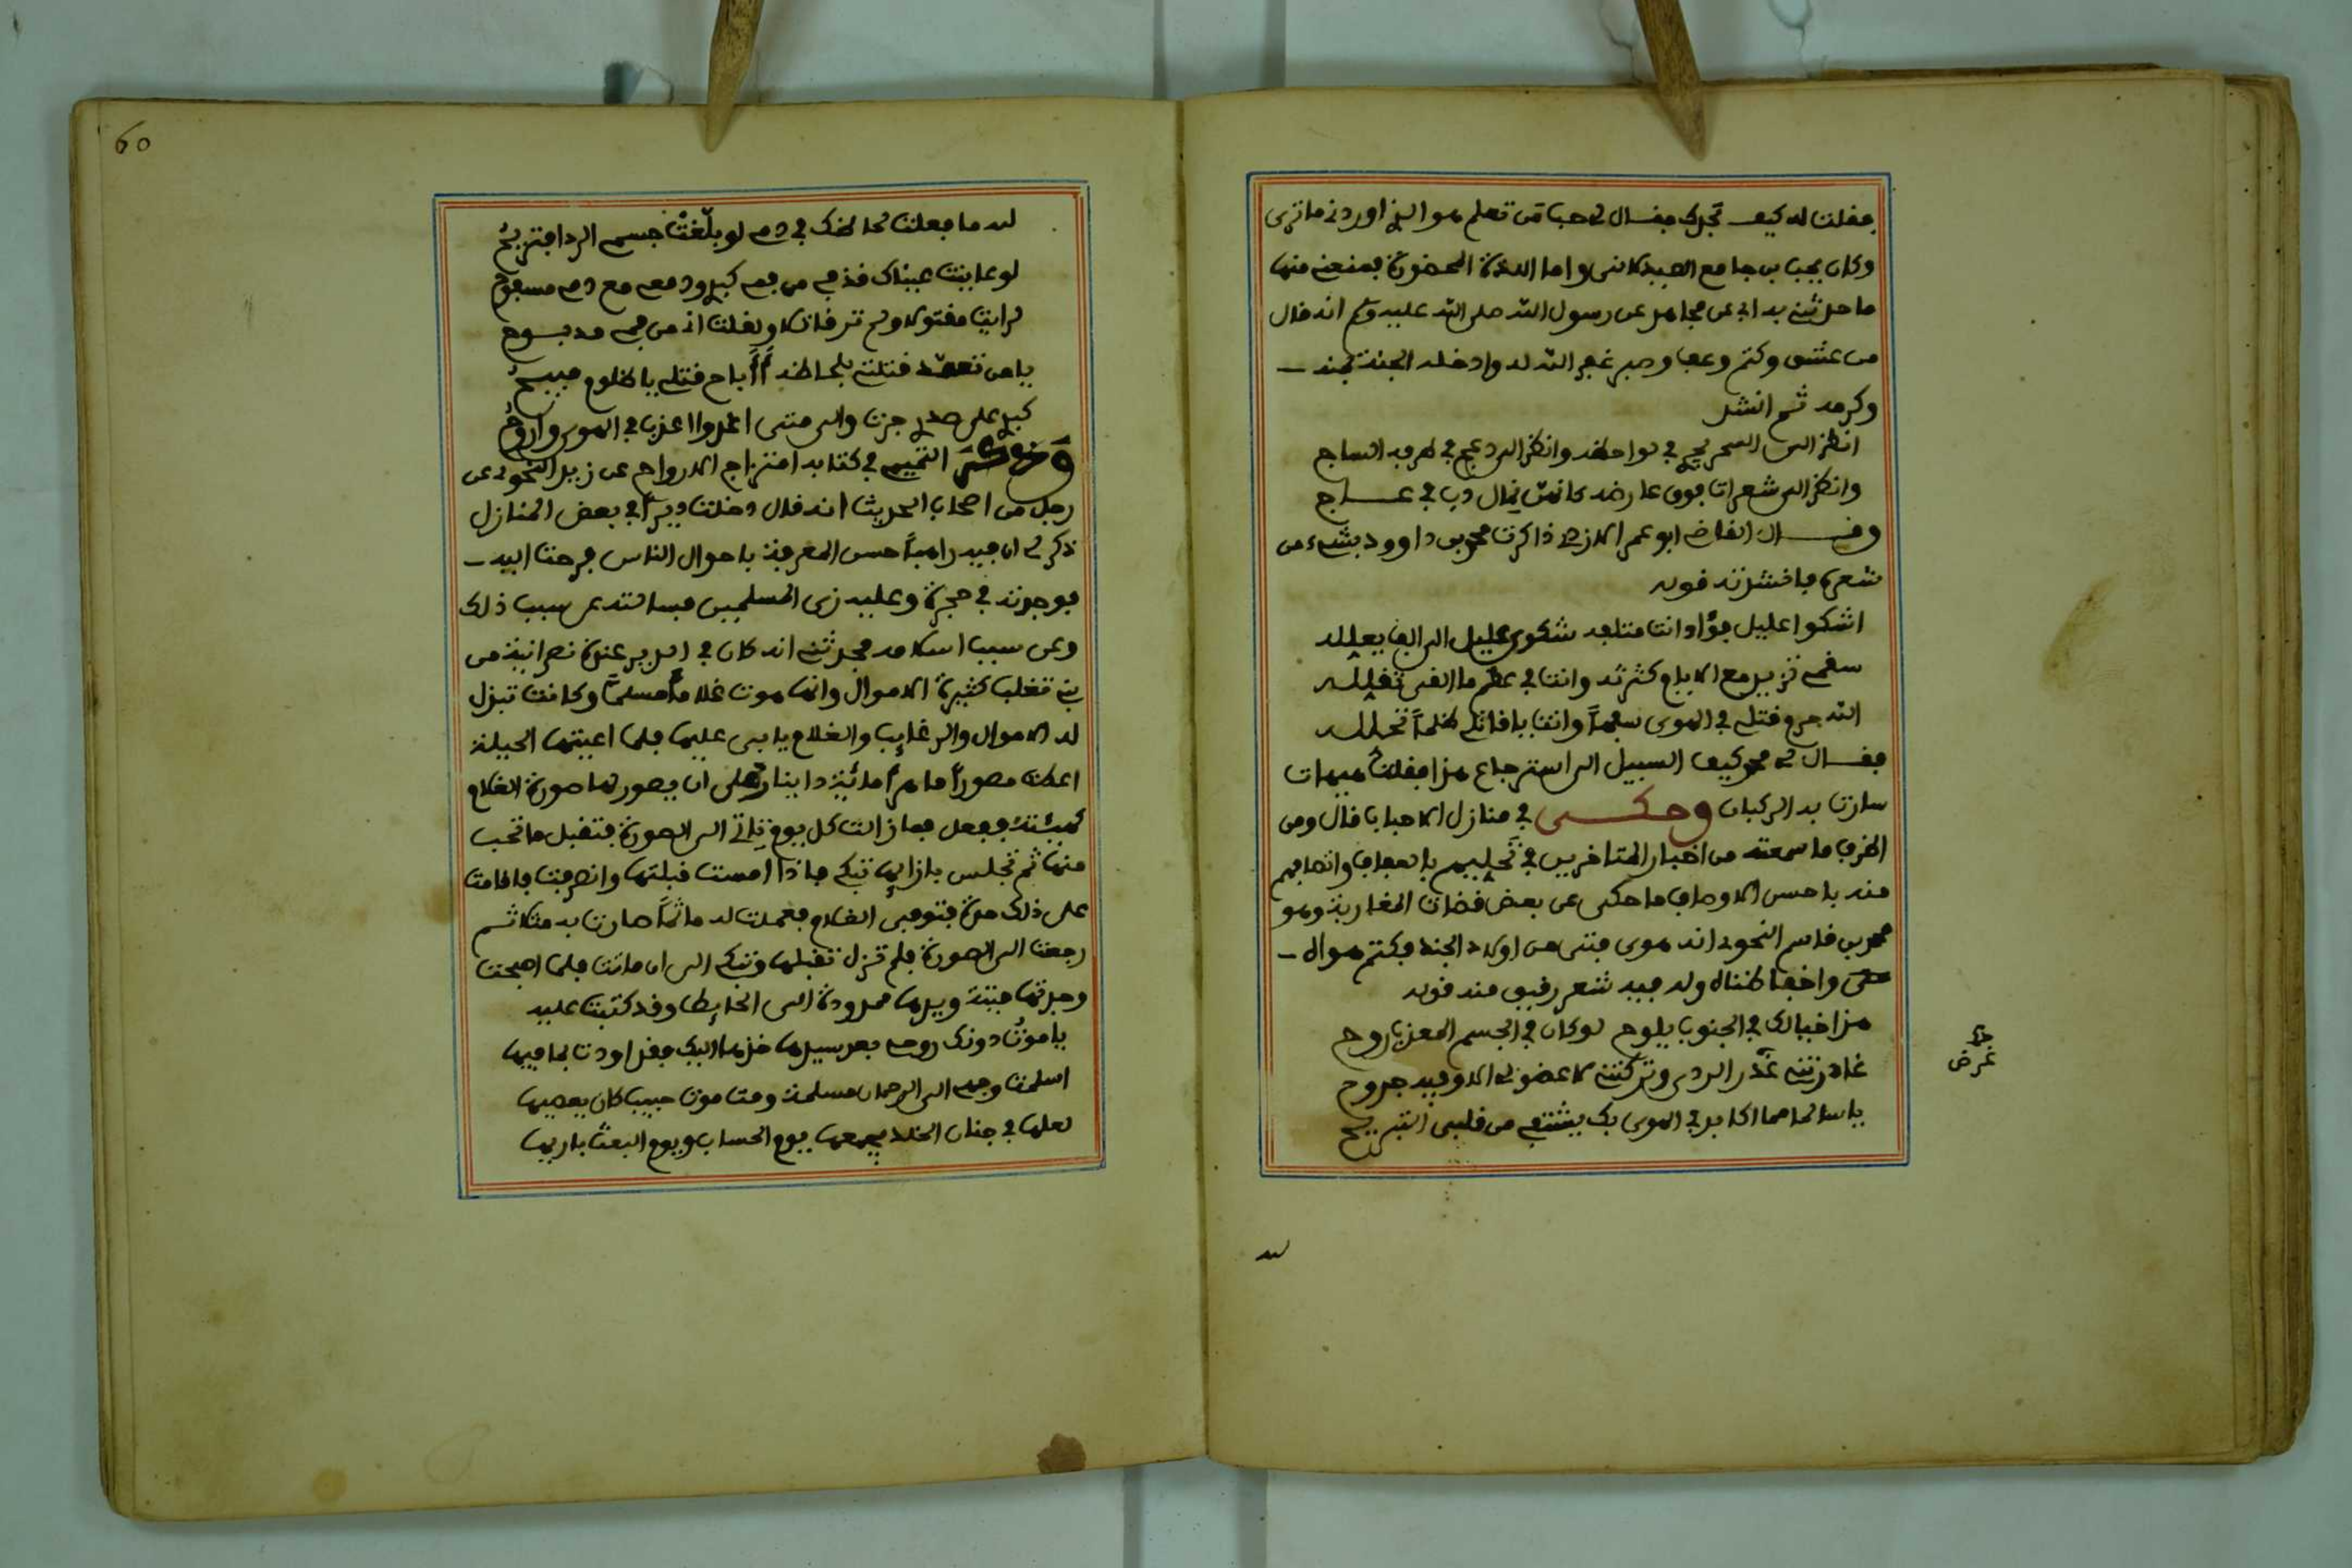 فقلت له كيف تجدك فقال لي حب من تعلم هو الذي اوردني ما ترى
وكان يحب بن جامع الصيدلاني واما اللذة المحضورة فمنعني منها
ما حدثني به ابي عن مجاهد عن رسول الله صلى الله عليه وسلم انه قال
من عشق وكتم وعف وصبر غفر الله له وادخله الجنة بمنه
وكرمه ثم انشد
انظر الى السحر يجري في لواحظه وانظر الى دعج في طرفه الساج
وانظر الى شعرات فوق عارضه كانهن نمال دب في عاج
وقال القاضي ابو عمر الازدي ذاكرت محمد بن داوود بشيء من
شعره فانشدته قوله
اشكوا عليل فؤاد انت متلفه شكوى عليل الى الف يعلله
سقمي تزيد مع الايام كثرته وانت في عظم ما القى تقلله
الله حرم قتلي في الهوى سفها وانت يا قاتلي ظلما تحلله
فقال لي محمد كيف السبيل الى استرجاع هذا فقلت هيهات
سارت به الركبان وحكى في منازل الاحباب قال ومن
اظرف ما سمعته من اخبار المتاخرين في تحليهم بالعفاف واتصافهم
منه باحسن الاوصاف ما حكى عن بعض قضات المغاربة وهو
محمد بن قاسم النحوي انه هوى فتى من اولاد الجند فكتم هواه
حتى واخفا ظناه وله فيه شعر رقيق منه قوله
هذا خيالك في الجنوب يلوح لو كان في الجسم المعذب روح
غادرتني غرض الردى وتركتني لا عضو لي الا وفيه جروح
يا سالما مما اكابد في الهوى بك يشتفي من قلبي التبريح
خ
غرض
لله
60
لله ما فعلت لحاظك في دمي لو بلغت جسم الردا فتريح
لو عاينت عيناك قذفي من فمي كبدي ودمعي مع دمي مسفوح
لرايت مقتولا ولم تر قاتلا ولقلت اني من فمي مدبوح
يا من تعمد قتلتي بلحاظه أأباح قتلي يا ظلوم مبيح
كبدي على صدري جرت والى متى اغدوا اعذب في الهوى واروح
وذكر التميمي في كتابه امتزاج الارواح عن زيد النحوي عن
رجل من اصحاب الحديث انه قال دخلت ديرا في بعض المنازل
ذكر لي ان فيه راهبا حسن المعرفة باحوال الناس فرحت اليه
فوجدته في حجرة وعليه زى المسلمين فسالته عن سبب ذلك
وعن سبب اسلامه فحدثني انه كان في الدير عندة نصرانية من
بني تغلب كثيرة الاموال وانها هوت غلاما مسلما وكانت تبزل
له الاموال والرغايب والغلام يابى عليها فلما اعيتها الحيلة
اعطت مصورا ماهرا مائية دينار على ان يصور لها صورة الغلام
كهيئته ففعل فما زالت كل يوم تاتي الى الصورة فتقبل ما تحب
منها ثم تجلس بازايها تبكي فاذا امست قبلتها وانصرفت فاقامت
على ذلك مدة فتوفي الغلام فعملت له ماتما صارت به مثلا ثم
رجعت الى الصورة فلم تزل تقبلها وتبكي الى ان ماتت فلما اصبحت
وجدتها ميتة ويدها ممدودة الى الحايط وقد كتبت عليه
يا موت دونك روحي بعد سيدها خذها اليك فقد اودت بما فيها
اسلمت وجهي الى الرحمان مسلمة ومت موت حبيب كان يعصيها
لعلها في جنان الخلد يجمعها يوم الحساب ويوم البعث باريها